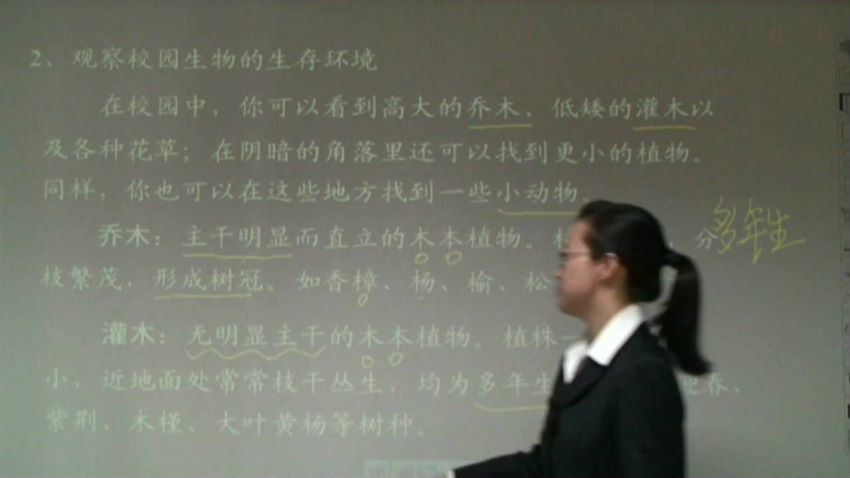 2、观察校园生物的生存环境
在校园中，你可以看到高大的乔木、低矮的灌木以
及各种花草；在阴暗的角落里还可以找到更小的植物。
同样，你也可以在这些地方找到一些小动物
乔木：主干明显而直立的木本植物。 、分
多年生
枝繁茂，形成树冠。如香樟、杨、榆、松
灌木：无明显主干的木本植物。植株一
小，近地面处常常枝干丛生，均为多年生 迎春、
紫荆、木槿、大叶黄杨等树种。